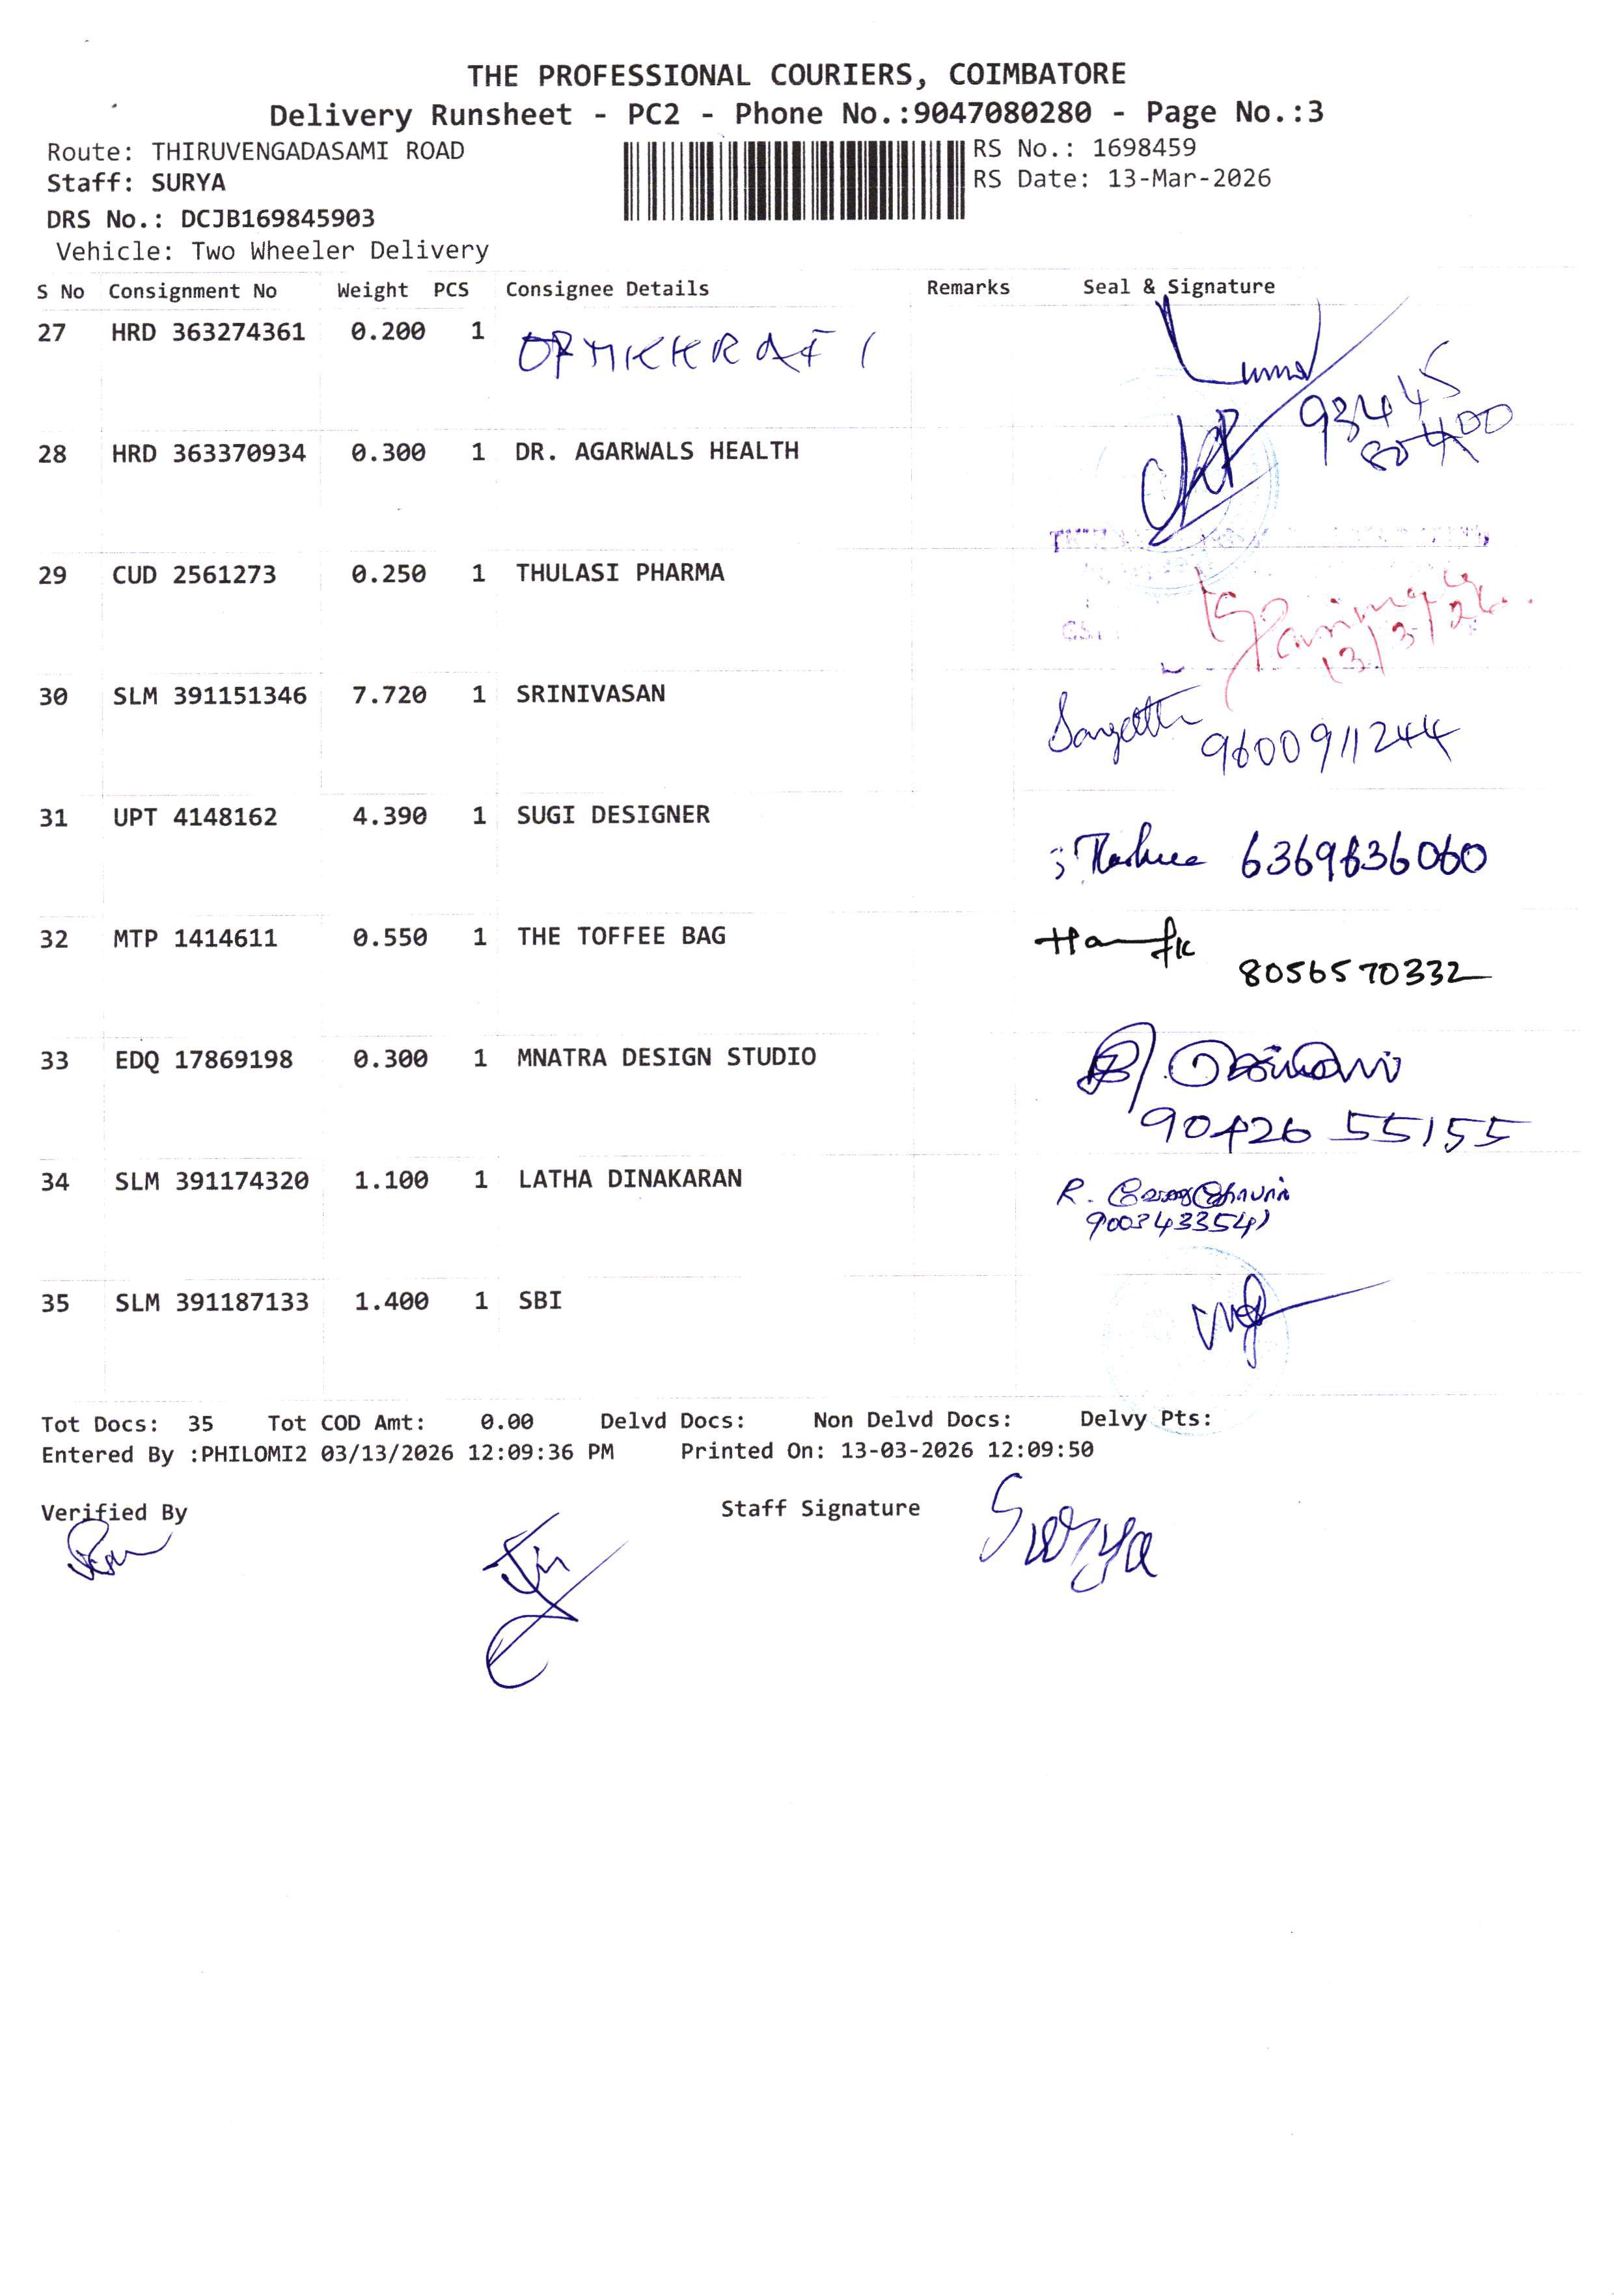 THE PROFESSIONAL COURIERS, COIMBATORE
Delivery Runsheet - PC2 - Phone No.:9047080280 - Page No.:3
Route: THIRUVENGADASAMI ROAD
RS No.: 1698459
Staff: SURYA
RS Date: 13-Mar-2026
DRS No.: DCJB169845903
Vehicle: Two Wheeler Delivery
S No Consignment No Weight PCS Consignee Details Remarks Seal & Signature
27 HRD 363274361 0.200 1
93445
28 HRD 363370934 0.300 1 DR. AGARWALS HEALTH
29 CUD 2561273 0.250 1 THULASI PHARMA
13/3/26
30 SLM 391151346 7.720 1 SRINIVASAN
9600911244
31 UPT 4148162 4.390 1 SUGI DESIGNER
6369636060
32 MTP 1414611 0.550 1 THE TOFFEE BAG
8056570332
33 EDQ 17869198 0.300 1 MNATRA DESIGN STUDIO
90426 55155
34 SLM 391174320 1.100 1 LATHA DINAKARAN
35 SLM 391187133 1.400 1 SBI
Tot Docs: 35 Tot COD Amt: 0.00 Delvd Docs: Non Delvd Docs: Delvy Pts:
Entered By :PHILOMI2 03/13/2026 12:09:36 PM Printed On: 13-03-2026 12:09:50
Verified By Staff Signature Surya